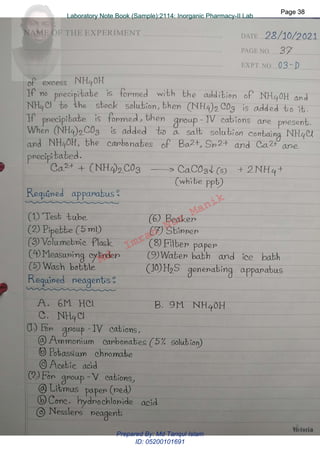 Laboratory Note Book (Sample):2114: Inorganic Pharmacy-II Lab
Page 38
NAME OF THE EXPERIMENT
DATE: 28/10/2021
PAGE NO. 37
EXPT. NO. 03-D
of excess NH4OH
If no precipitate is formed with the addition of NH4OH and
NH4Cl to the stock solution, then (NH4)2 CO3 is added to it.
If precipitate is formed, then group-IV cations are present.
When (NH4)2CO3 is added to a salt solution containg NH4Cl
and NH4OH, the carbonates of Ba2+, Sr2+ and Ca2+ are
precipitated.
Ca2+ + (NH4)2 CO3 → CaCO3↓ (s) + 2NH4+
(white ppt)
Required apparatus:
(1) Test tube
(2) Pipette (5 ml)
(3) Volumetric Flask
(4) Measuring cylinder
(5) Wash bottle
(6) Beaker
(7) Stirrer
(8) Filter paper
(9) Water bath and ice bath
(10) H2S generating apparatus
Required reagents:
A. 6M HCl
B. 9M NH4OH
C. NH4Cl
(1) For group-IV cations,
(a) Ammonium carbonates (5% solution)
(b) Potassium chromate
(c) Acetic acid
(2) For group-V cations,
(a) Litmus paper (red)
(b) Conc. hydrochloride acid
(c) Nesslers reagent
Imran Manik
Victoria
Prepared By: Md Tariqul Islam
ID: 05200101691